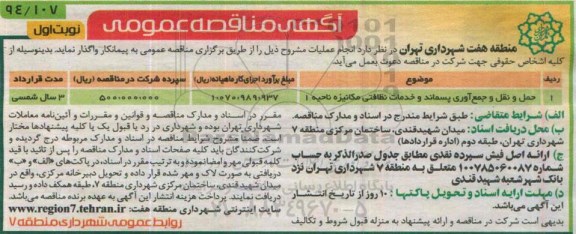 ۹۴/۱۰۷
آگهی مناقصه عمومی
نوبت اول
منطقه هفت شهرداری تهران در نظر دارد انجام عملیات مشروح ذیل را از طریق برگزاری مناقصه عمومی به پیمانکار واگذار نماید. بدینوسیله از
کلیه اشخاص حقوقی جهت شرکت در مناقصه دعوت بعمل می‌آید.
ردیف موضوع مبلغ برآورد اجرای کار ماهیانه (ریال) سپرده شرکت در مناقصه (ریال) مدت قرارداد
۱ حمل و نقل و جمع‌آوری پسماند و خدمات نظافتی مکانیزه ناحیه ۱ ۳ سال شمسی
الف) شرایط متقاضی: طبق شرایط مندرج در اسناد و مدارک مناقصه.
ب) محل دریافت اسناد: میدان شهیدقندی، ساختمان مرکزی منطقه ۷
شهرداری تهران، طبقه دوم (اداره قراردادها)
ج) ارائه اصل فیش سپرده نقدی مطابق جدول صدرالذکر به حساب
شماره ۱۰۰۷۸۵۰۶۰۰۸۷ متعلق به منطقه ۷ شهرداری تهران نزد
بانک شهر شعبه شهید قندی
د) مهلت ارایه اسناد و تحویل پاکتها: ۱۰ روز از تاریخ انتشار
این آگهی می‌باشد.
بدیهی است شرکت در مناقصه و ارائه پیشنهاد به منزله قبول شروط و تکالیف
مقرر در اسناد و مدارک مناقصه و قوانین و مقررات و آئین‌نامه معاملات
شهرداری تهران بوده و شهرداری در رد یا قبول یک یا کلیه پیشنهادها مختار
است. ضمناً مشروح شرایط مناقصه در اسناد و مدارک مربوطه درج گردیده و
شرکت‌کنندگان باید کلیه صفحات اسناد و مدارک مناقصه را پس از تائید با قید
کلمه قبولی مهر و امضا نموده و به ترتیب مقرر در اسناد، در پاکت‌های «الف» و «ب»
دریافتی به صورت لاک و مهر شده قرار داده و تحویل دبیرخانه مرکزی، واقع در
میدان شهید قندی، ساختمان مرکزی شهرداری منطقه ۷، طبقه همکف داده و رسید
دریافت نمایند. پرداخت هزینه انتشار این آگهی به عهده برنده مناقصه می‌باشد.
سایت اینترنتی شهرداری منطقه هفت: www.region7.tehran.ir
روابط عمومی شهرداری منطقه ۷